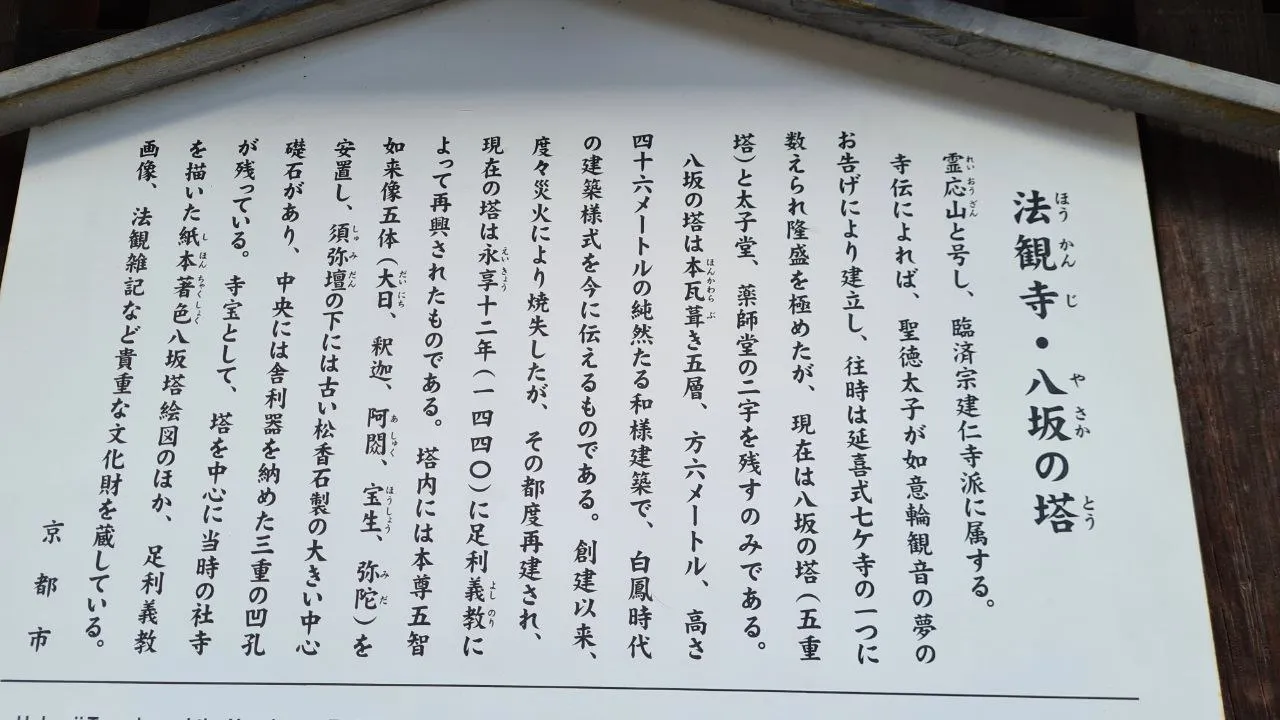 法観寺・八坂の塔
霊応山と号し、臨済宗建仁寺派に属する。
寺伝によれば、聖徳太子が如意輪観音の夢の
お告げにより建立し、往時は延喜式七ケ寺の一つに
数えられ隆盛を極めたが、現在は八坂の塔（五重
塔）と太子堂、薬師堂の二宇を残すのみである。
八坂の塔は本瓦葺き五層、方六メートル、高さ
四十六メートルの純然たる和様建築で、白鳳時代
の建築様式を今に伝えるものである。創建以来、
度々災火により焼失したが、その都度再建され、
現在の塔は永享十二年（一四四〇）に足利義教に
よって再興されたものである。塔内には本尊五智
如来像五体（大日、釈迦、阿閦、宝生、弥陀）を
安置し、須弥壇の下には古い松香石製の大きい中心
礎石があり、中央には舎利器を納めた三重の凹孔
が残っている。寺宝として、塔を中心に当時の社寺
を描いた紙本著色八坂塔絵図のほか、足利義教
画像、法観雑記など貴重な文化財を蔵している。
京都市